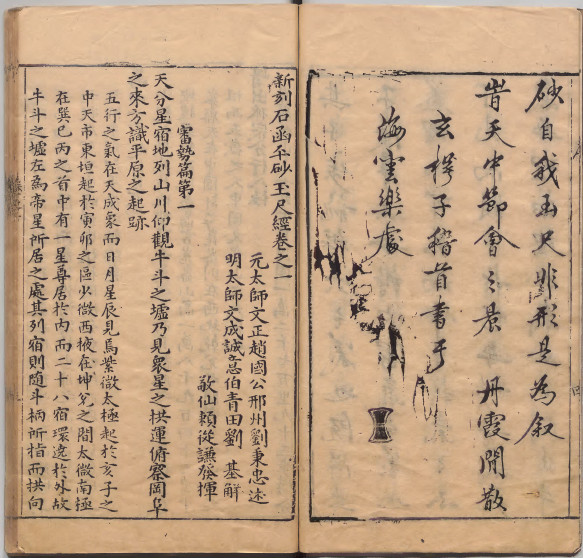 砂自我玉尺非形是為叙
昔天中節會之晨丹霞閒散
玄㮊子稽首書于
海雲樂處
新刻石函平砂玉尺經卷之一
元太師文正趙國公邢州劉秉忠述
明太師文成誠意伯青田劉基解
敬仙賴從謙發揮
審勢篇第一
天分星宿地列山川仰觀牛斗之墟乃見衆星之拱運俯察岡阜
之來方識平原之起跡
五行之氣在天成象而日月星辰見焉紫微太極起於亥子之
中天市東垣起於寅卯之區少微西掖在坤兌之間太微南極
在巽巳丙之首中有一星尊居於內而二十八宿環遶於外故
牛斗之墟左為帝星所居之處其列宿則随斗柄所指而拱向